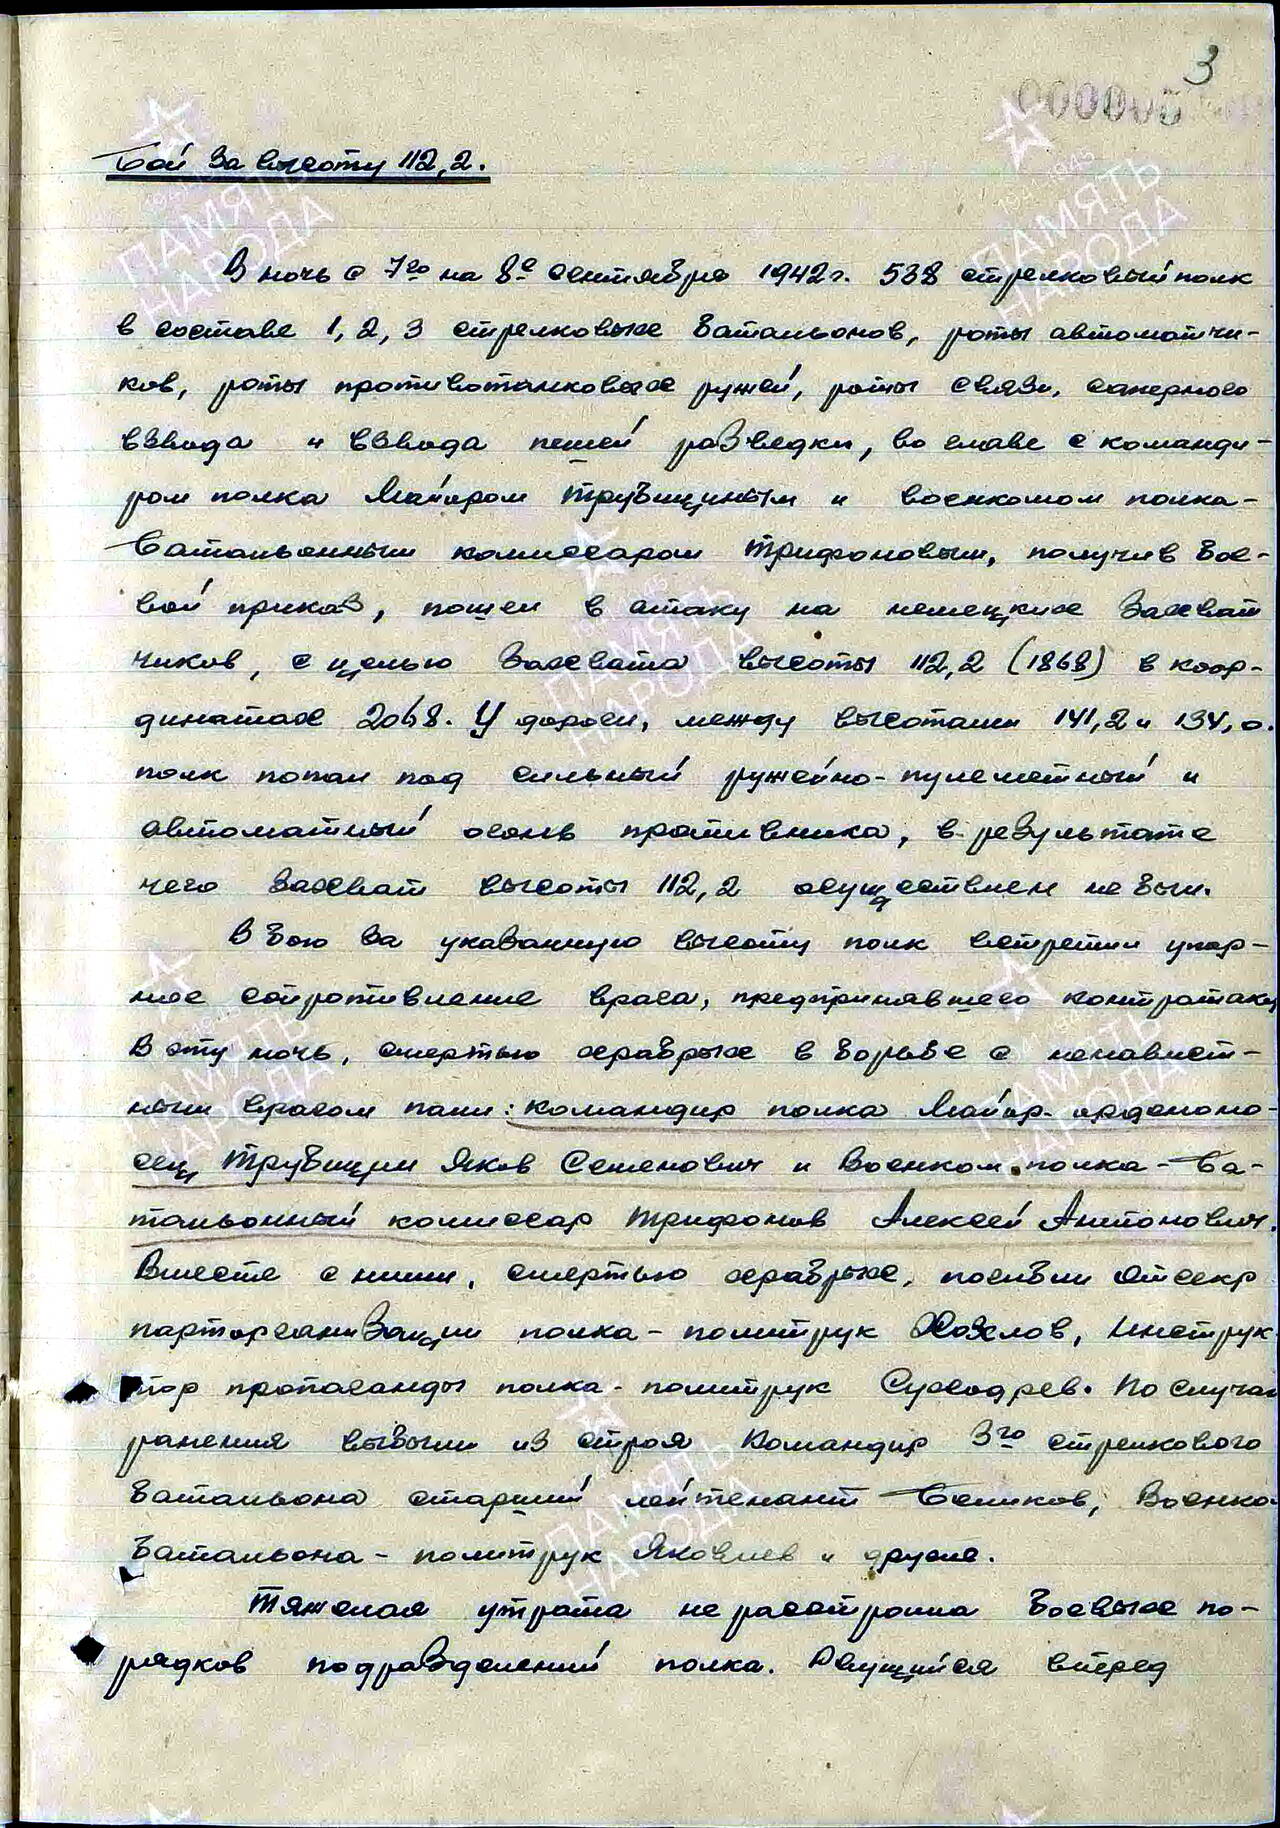 3
Бой за высоту 112,2.
В ночь с 7го на 8е сентября 1942г. 538 стрелковый полк
в составе 1, 2, 3 стрелковых батальонов, роты автоматчи-
ков, роты противотанковых ружей, роты связи, саперного
взвода и взвода пешей разведки, во главе с команди-
ром полка Майором Трубициным и военкомом полка-
батальонным комиссаром Трифоновым, получив бое-
вой приказ, пошел в атаку на немецких захват
чиков, с целью захвата высоты 112,2 (1868) в коор-
динатах 2068. У дороги, между высотами 141,2 и 134,0.
полк попал под сильный ружейно-пулеметный и
автоматный огонь противника, в результате
чего захват высоты 112,2 осуществлен не был.
В бою за указанную высоту полк встретил упор-
ное сопротивление врага, предпринявшего контратаку
В эту ночь, смертью храбрых в борьбе с ненавист-
ным врагом пали: командир полка Майор-орденоно-
сец Трубицин Яков Семенович и Военком полка - Ба-
тальонный комиссар Трифонов Алексей Антонович.
Вместе с ними, смертью храбрых, погибли Отсекр
парторганизации полка - политрук Хохлов, Инструк
тор пропаганды полка - политрук Суходрев. По случаю
ранения выбыли из строя Командир 3го стрелкового
батальона старший лейтенант Беликов, Военком
батальона - политрук Яковлев и другие.
Тяжелая утрата не расстроила боевых по-
рядков подразделений полка. Рвущийся вперед
ПАМЯТЬ
НАРОДА